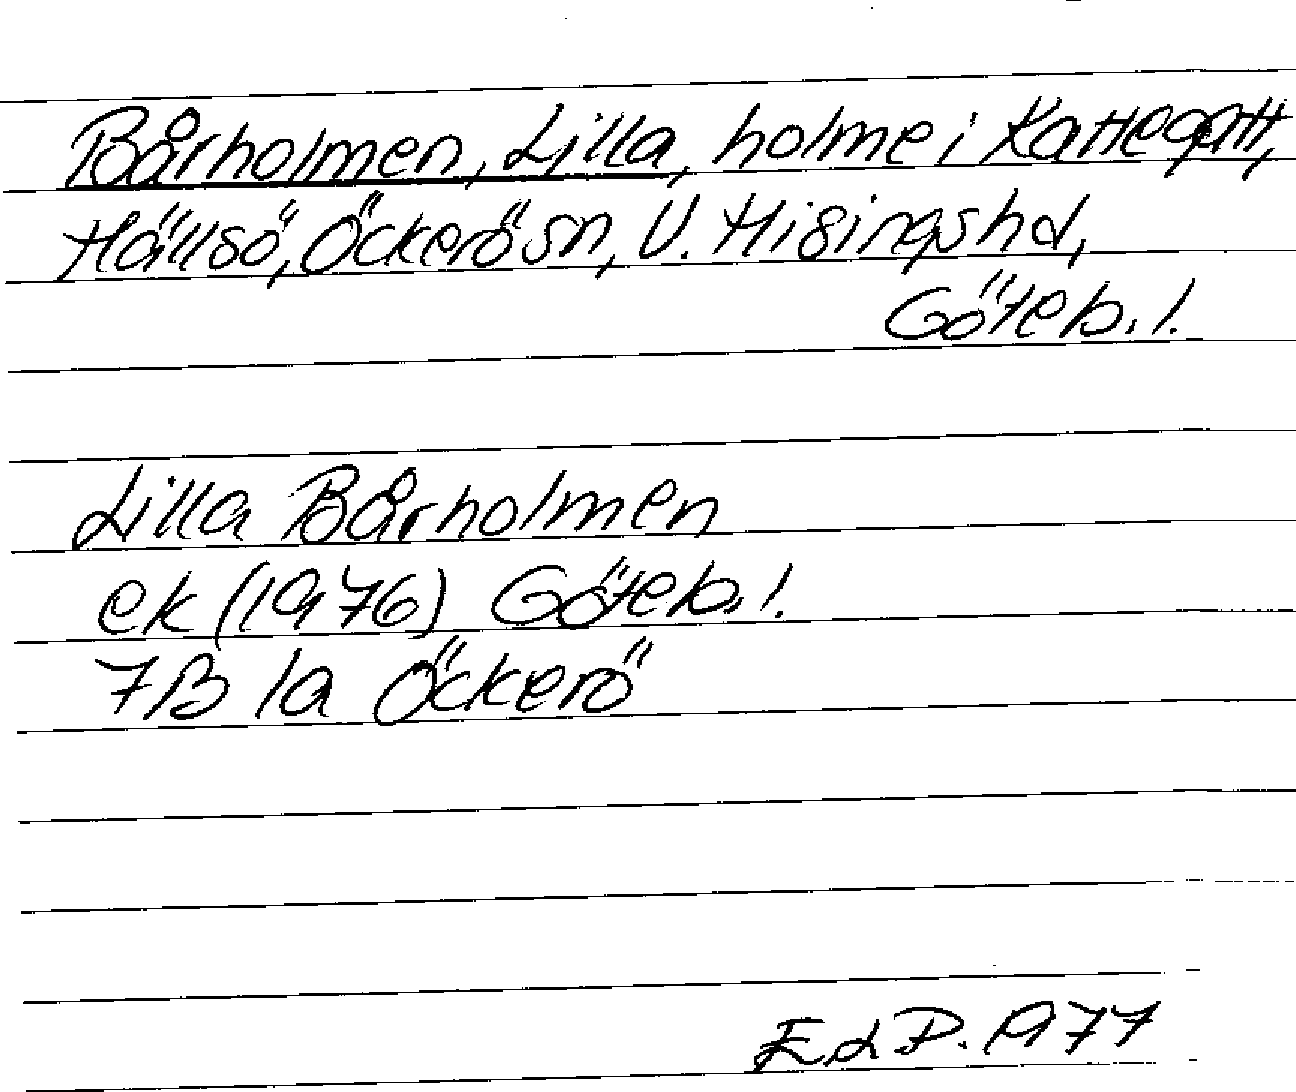 Bårholmen, Lilla, holme i Kattegatt,
Hällsö, Öckerö sn, V. Hisings hd,
Göteb. l.
Lilla Bårholmen
ek (1976) Göteb. l.
7B 1a Öckerö
ELD. 1977